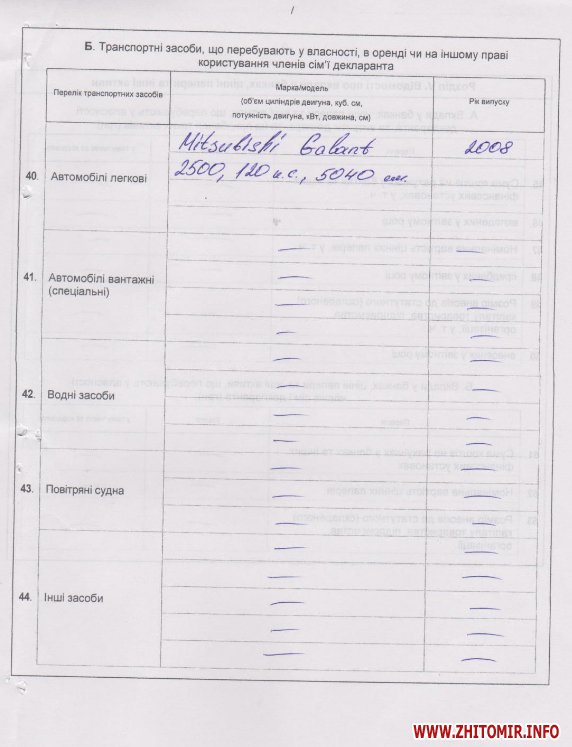 Б. Транспортні засоби, що перебувають у власності, в оренді чи на іншому праві
користування членів сім'ї декларанта
Перелік транспортних засобів
Марка/модель
(об'єм циліндрів двигуна, куб. см,
потужність двигуна, кВт, довжина, см)
Рік випуску
Mitsubishi Galant 2008
40. Автомобілі легкові
2500, 120 к.с., 5040 см.
41. Автомобілі вантажні
(спеціальні)
42. Водні засоби
43. Повітряні судна
44. Інші засоби
WWW.ZHITOMIR.INFO